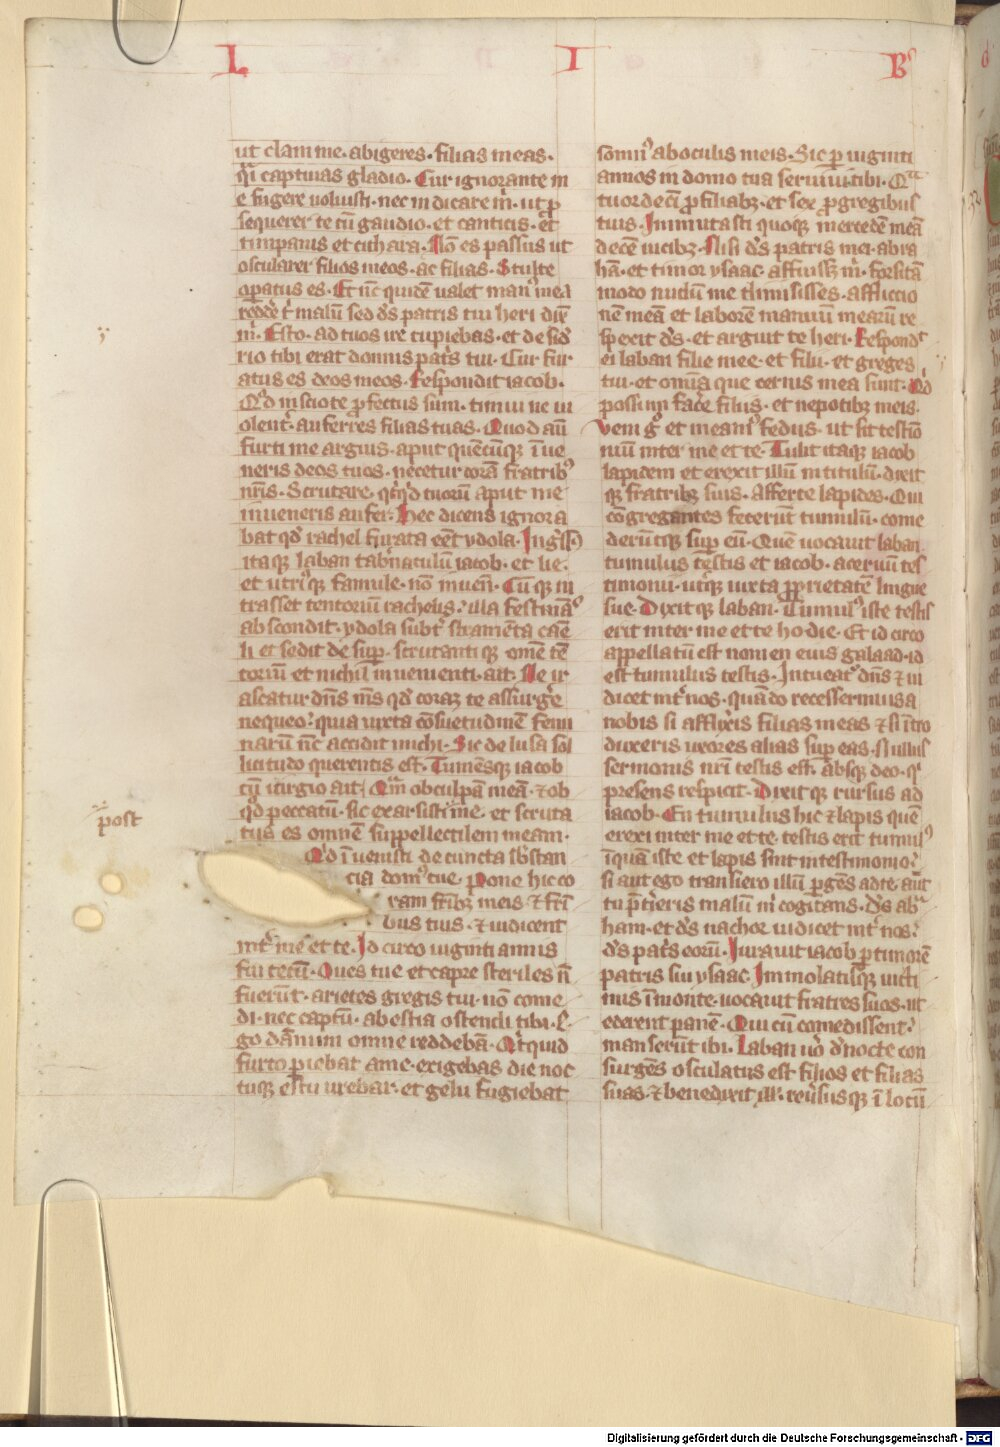 L I Bˢ
ut clam me · abigeres · filias meas ·
q̄i captiuas gladio · Cur ignorante m
e fugere uoluisti · nec indicare m̄ · ut ꝓ
sequerer te cū gaudio · et canticis · et
timpanis et cithara · Nō es passus ut
oscularer filios meos · ac filias · Stulte
oꝑatus es · Et nc̄ quidē ualet manꝰ mea
redde t̄ malū sed ds̄ patris tui heri dix̄
m̄ · Esto · ad tuos ire cupiebas · et desid̄
rio tibi erat domus pat̄s tui · Cur fur
atus es deos meos · Respondit iacob ·
Qd̄ inscio te ꝓfectus sum · timui ne ui
olent̄ · auferres filias tuas · Quod aū
furti me arguis · aput quēcūque īue
neris deos tuos · necetur corā fratribꝰ
nr̄is · Scrutare · qcqd̄ tuorū aput me
inueneris aufer · Hec dicens ignora
bat qd̄ rachel furata eēt ydola · Ingr̄ssꝰ
itaque laban tab̄naculū iacob · et lie ·
et utriꝰque famule · nō inuen̄ · Cūque in
trasset tentoriū rachelis · illa festināˢ
abscondit · ydola subt̄ stramēta camē
li et sedit desuꝑ · scrutantique omē tē
toriū et nichil inuenienti · ait · Ne ir
ascatur dn̄s ms̄ qd̄ coraꝫ te assurge̅
nequeo · quia iuxta cōsuetudinē femi
narū nc̄ accidit michi · Sic delusa sol
licitudo querentis est · Tumēsque iacob
cū iurgio ait · Qm̄ ob culpā meā · ⁊ ob
qd̄ peccatū · sic exarsisti ī me · et scruta
tus es omnē suppellectilem meam ·
post
Qd̄ īuenisti de cuncta sb̄stan
cia domꝰ tue · pone hic co
ram fr̄ibꝫ meis ⁊ fr̄i
bus tuis · ⁊ iudicent
int̄ me et te · Idcirco uiginti annis
fui tecū · Oues tue et capre steriles n̄
fuerūt · arietes gregis tui · nō come
di · nec captū · a bestia ostendi tibi · E
go dāmnum omne reddebā · Qcquid
furto ꝑiebat a me · exigebas die noc
tuque estu urebar · et gelu fugiebat
somnꝰ ab oculis meis · Sic ꝑ uiginti
annos in domo tua seruiui tibi · Qᵃ
tuordecī ꝓ filiabꝫ · et sex ꝓ gregibus
tuis · Inmutasti quoque mercedē meā
decē uicibꝫ · Nisi ds̄ patris mei · abra
hā · et timor ysaac · affuissꝫ m̄ · forsitā
modo nudū me dimisisses · afflictio
nē meā et laborē manuū mearū re
spexit ds̄ · et arguit te heri · Respond̄
ei laban filie mee · et filii · et greges
tui · et omīa que cernis mea sunt · Qd̄
possum face̅ filiis · et nepotibꝫ meis ·
Veni gͦ et ineamꝰ fedus · ut sit testīo
niū inter me et te · Tulit itaque iacob
lapidem et erexit illū in titulū · dixit
que fratribꝫ suis · Afferte lapides · Qui
cōgregantes fecerūt tumulū · come
derūtque suꝑ eū · Quē uocauit laban
tumulus testis et iacob · aceruū tes
timonii · ut̄que iuxta ꝓprietatē lingue
sue · Dixitque laban · Tumulꝰ iste testis
erit inter me et te hodie · Et idcirco
appellatū est nomen eius galaad · id
est tumulus testis · Intueatꝰ dn̄s ⁊ iu
dicet int̄ nos · quādo recesserimus a
nobis si afflixeris filias meas ⁊ si ītro
duxeris uxores alias suꝑ eas · Nullus
sermonis nr̄i testis est · absque deo · qⁱ
presens respicit · Dixitque rursus ad
iacob · En tumulus hic ⁊ lapis quē
erexi inter me et te · testis erit tumulꝰ
īquā iste et lapis sint in testimonio ·
si aut ego transiero illū ꝑgēs ad te · aut̄
tu p̄t̄ieris malū m̄ cogitans · Ds̄ abᵃ
ham · et ds̄ nachor iudicet int̄ nos ·
ds̄ pat̄s eorū · Iurauit iacob ꝑ timorē
patris sui ysaac · Immolatisque uicti
mis ī monte · uocauit fratres suos · ut
ederent panē · Qui cū comedissent ·
manserūt ibi · Laban uͦ d̄ nocte con
surgēs osculatus est filios et filias
suas · ⁊ benedixit illꝭ · reu̅susque ī locū
32
Digitalisierung gefördert durch die Deutsche Forschungsgemeinschaft - DFG